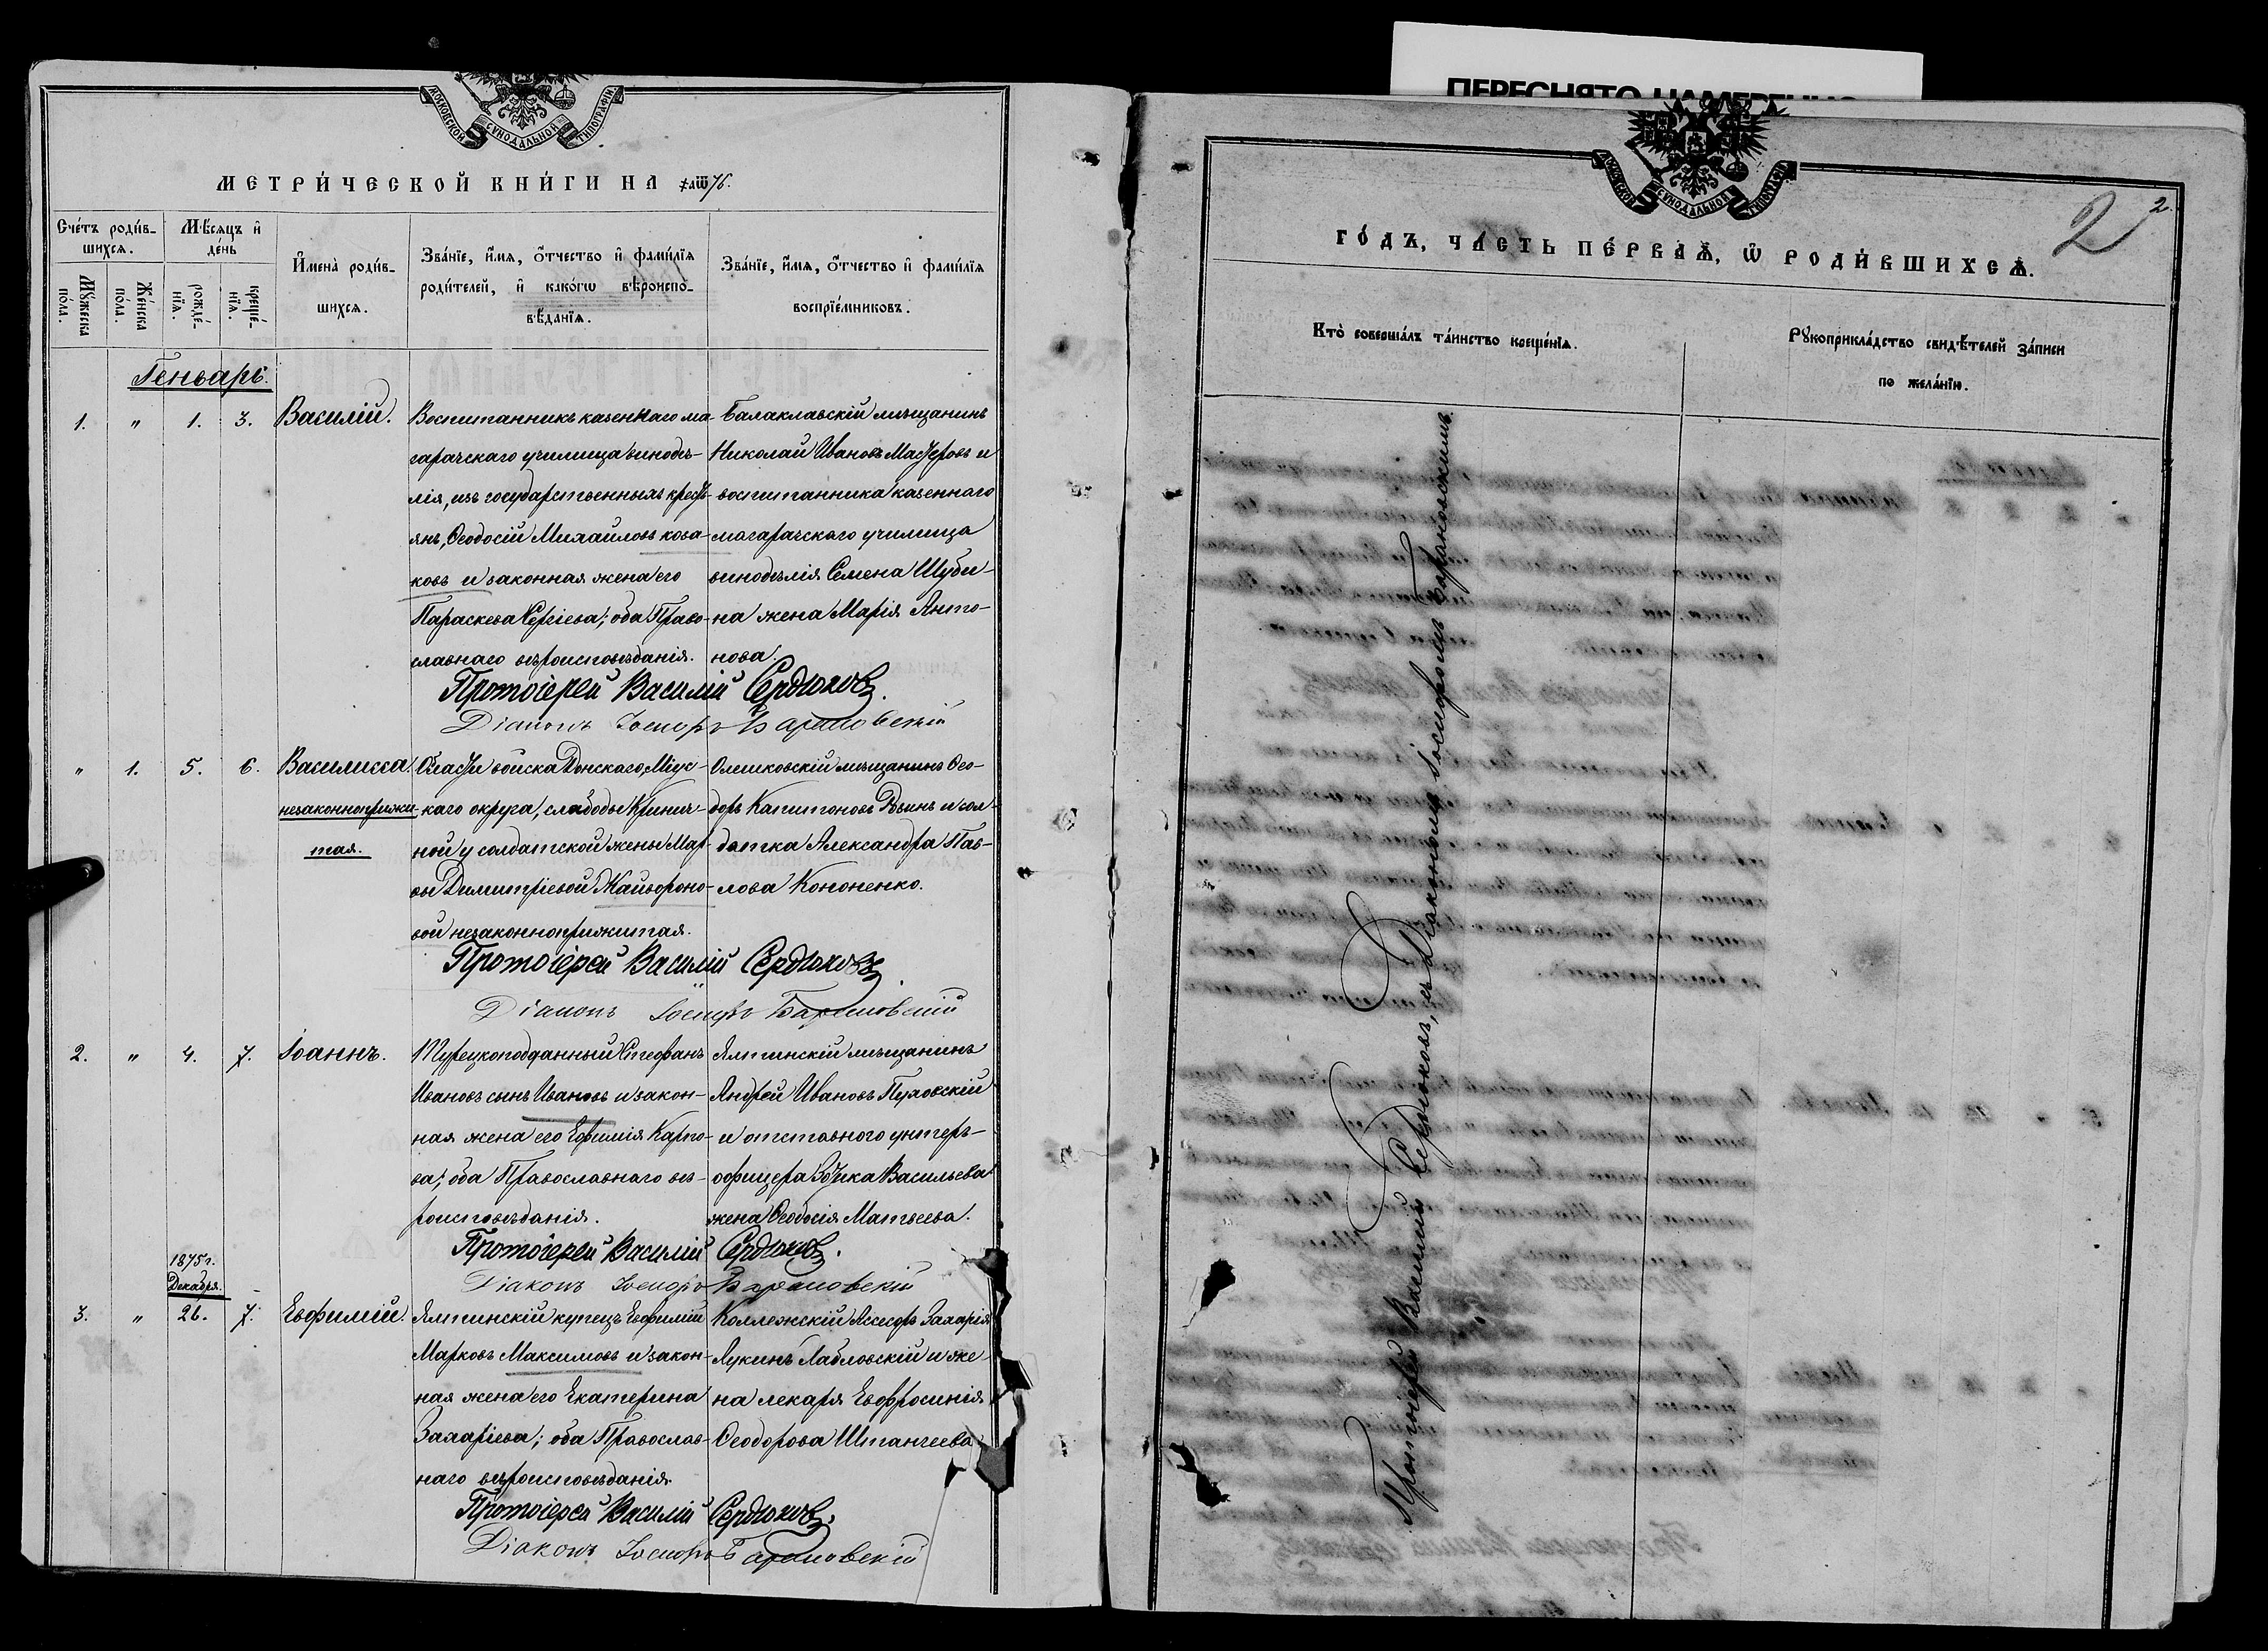 ПЕРЕСНЯТО НАМЕРЕННО
МОСКОВСКОЙ СѴНОДАЛЬНОЙ ТИПОГРАФІИ
МЕТРИ́ЧЕСКОЙ КНИ́ГИ НА ҂аѿ76.
Сче́тъ роди́в-
шихся.
Мѣ́сяцъ и҆
де́нь
Мꙋ́жеска
пола.
Же́нска
пола.
рожде́-
нїѧ.
креще́-
нїѧ.
И҆мена̀ роди́в-
шихся.
Зва́нїе, и҆́мѧ, ѻ҆́тчество и҆ фами́лїѧ
роди́телей, и҆ како́гѡ вѣроиспо-
вѣ́данїѧ.
Зва́нїе, и҆́мѧ, ѻ҆́тчество и҆ фами́лїѧ
воспрїе́мниковъ.
Геньварь.
1. " 1. 3. Василій.
Воспитанникъ казеннаго ма-
гарачскаго училища винодѣ-
лія, изъ государственныхъ кресть-
янъ, Ѳеодосій Михаиловъ коза-
ковъ и законная жена его
Параскева Сергіева; оба Право-
славнаго вѣроисповѣданія.
Балаклавскій мѣщанинъ
Николай Ивановъ Мастеровъ и
воспитанника казеннаго
магарачскаго училища
винодѣлія Семена Шуби-
на жена Марія Анто-
нова.
Протоіерей Василій Сердюковъ.
Діаконъ Іосифъ Барановскій
" 1. 5. 6. Василисса.
незаконноприжи-
тая.
Области войска Донскаго, Міус-
каго округа, слободы Кринич-
ной у солдатской жены Мар-
вы Димитріевой Жайворono-
вой незаконноприжитая.
Олешковскій мѣщанинъ Ѳео-
доръ Капитоновъ Ровинъ и сол-
датка Александра Пав-
лова Кононенко.
Протоіерей Василій Сердюковъ.
Діаконъ Іосифъ Барановскій
2. " 4. 7. Іоаннъ.
Турецкоподданный Стефанъ
Ивановъ сынъ Ивановъ и закон-
ная жена его Ефимія Карпо-
ва; оба Православнаго вѣ-
роисповѣданія.
Ялтинскій мѣщанинъ
Андрей Ивановъ Пуховскій
и отставного унтеръ-
офицера Васильева
жена Ѳеодосія Матвеева.
Протоіерей Василій Сердюковъ.
Діаконъ Іосифъ Барановскій
1875 г.
Декабря.
3. " 26. 7. Евфимій.
Ялтинскій купецъ Евфимій
Марковъ Максимовъ и закон-
ная жена его Екатерина
Захаріева; оба Православ-
наго вѣроисповѣданія.
Коллежскій Ассесоръ Захарія
Лукинъ Лабловскій и же-
на лекаря Евфросинія
Ѳеодорова Штанчеева.
Протоіерей Василій Сердюковъ.
Діаконъ Іосифъ Барановскій
МОСКОВСКОЙ СѴНОДАЛЬНОЙ ТИПОГРАФІИ
2 2.
ГО́ДЪ, ЧА́СТЬ ПЕ́РВАѦ, Ѽ РОДИ́ВШИХСѦ.
Кто̀ соверша́лъ та́инство креще́нїѧ.
Рꙋкоприкла́дство свидѣ́телей за́писи
по жела́нїю.
Протоіерей Василій Сердюковъ, съ Діакономъ Іосифомъ Барановскимъ.